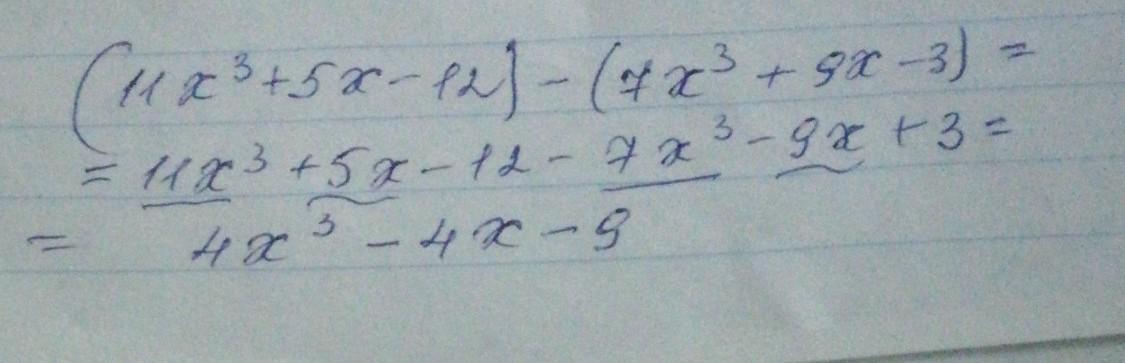 (11x³+5x-12)-(7x³+9x-3)=
=11x³+5x-12-7x³-9x+3=
= 4x³-4x-9